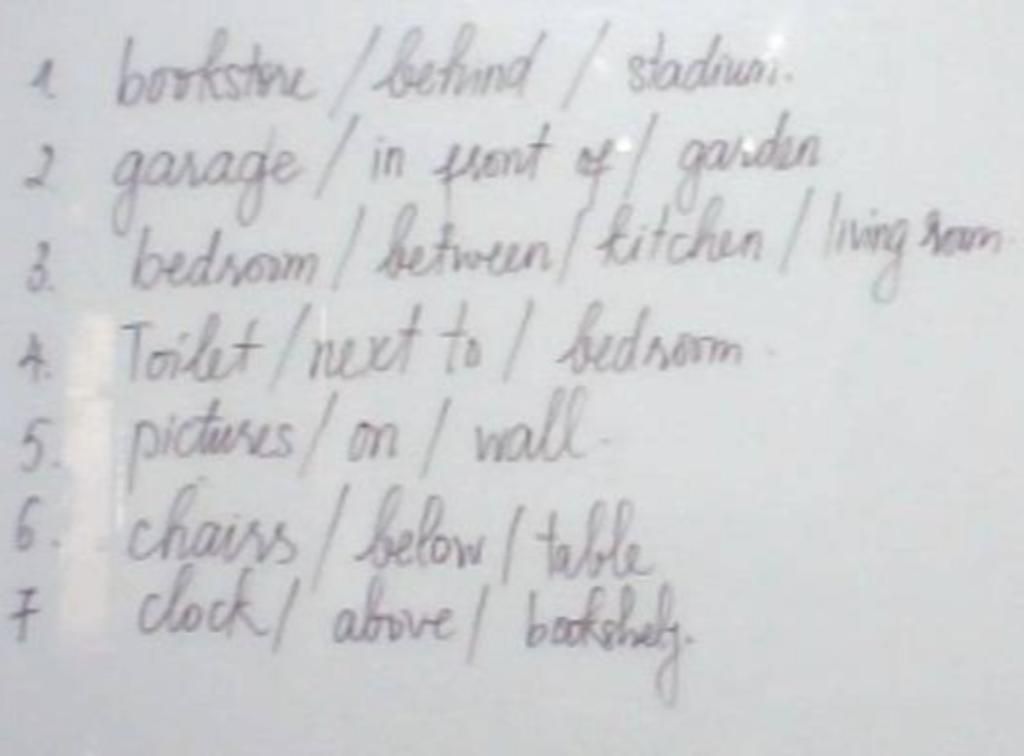 1 bookstore / behind / stadium.
2 garage / in front of / garden
3. bedroom / between / kitchen / living room
4. Toilet / next to / bedroom.
5. pictures / on / wall.
6. chairs / below / table
7 clock / above / bookshelf.